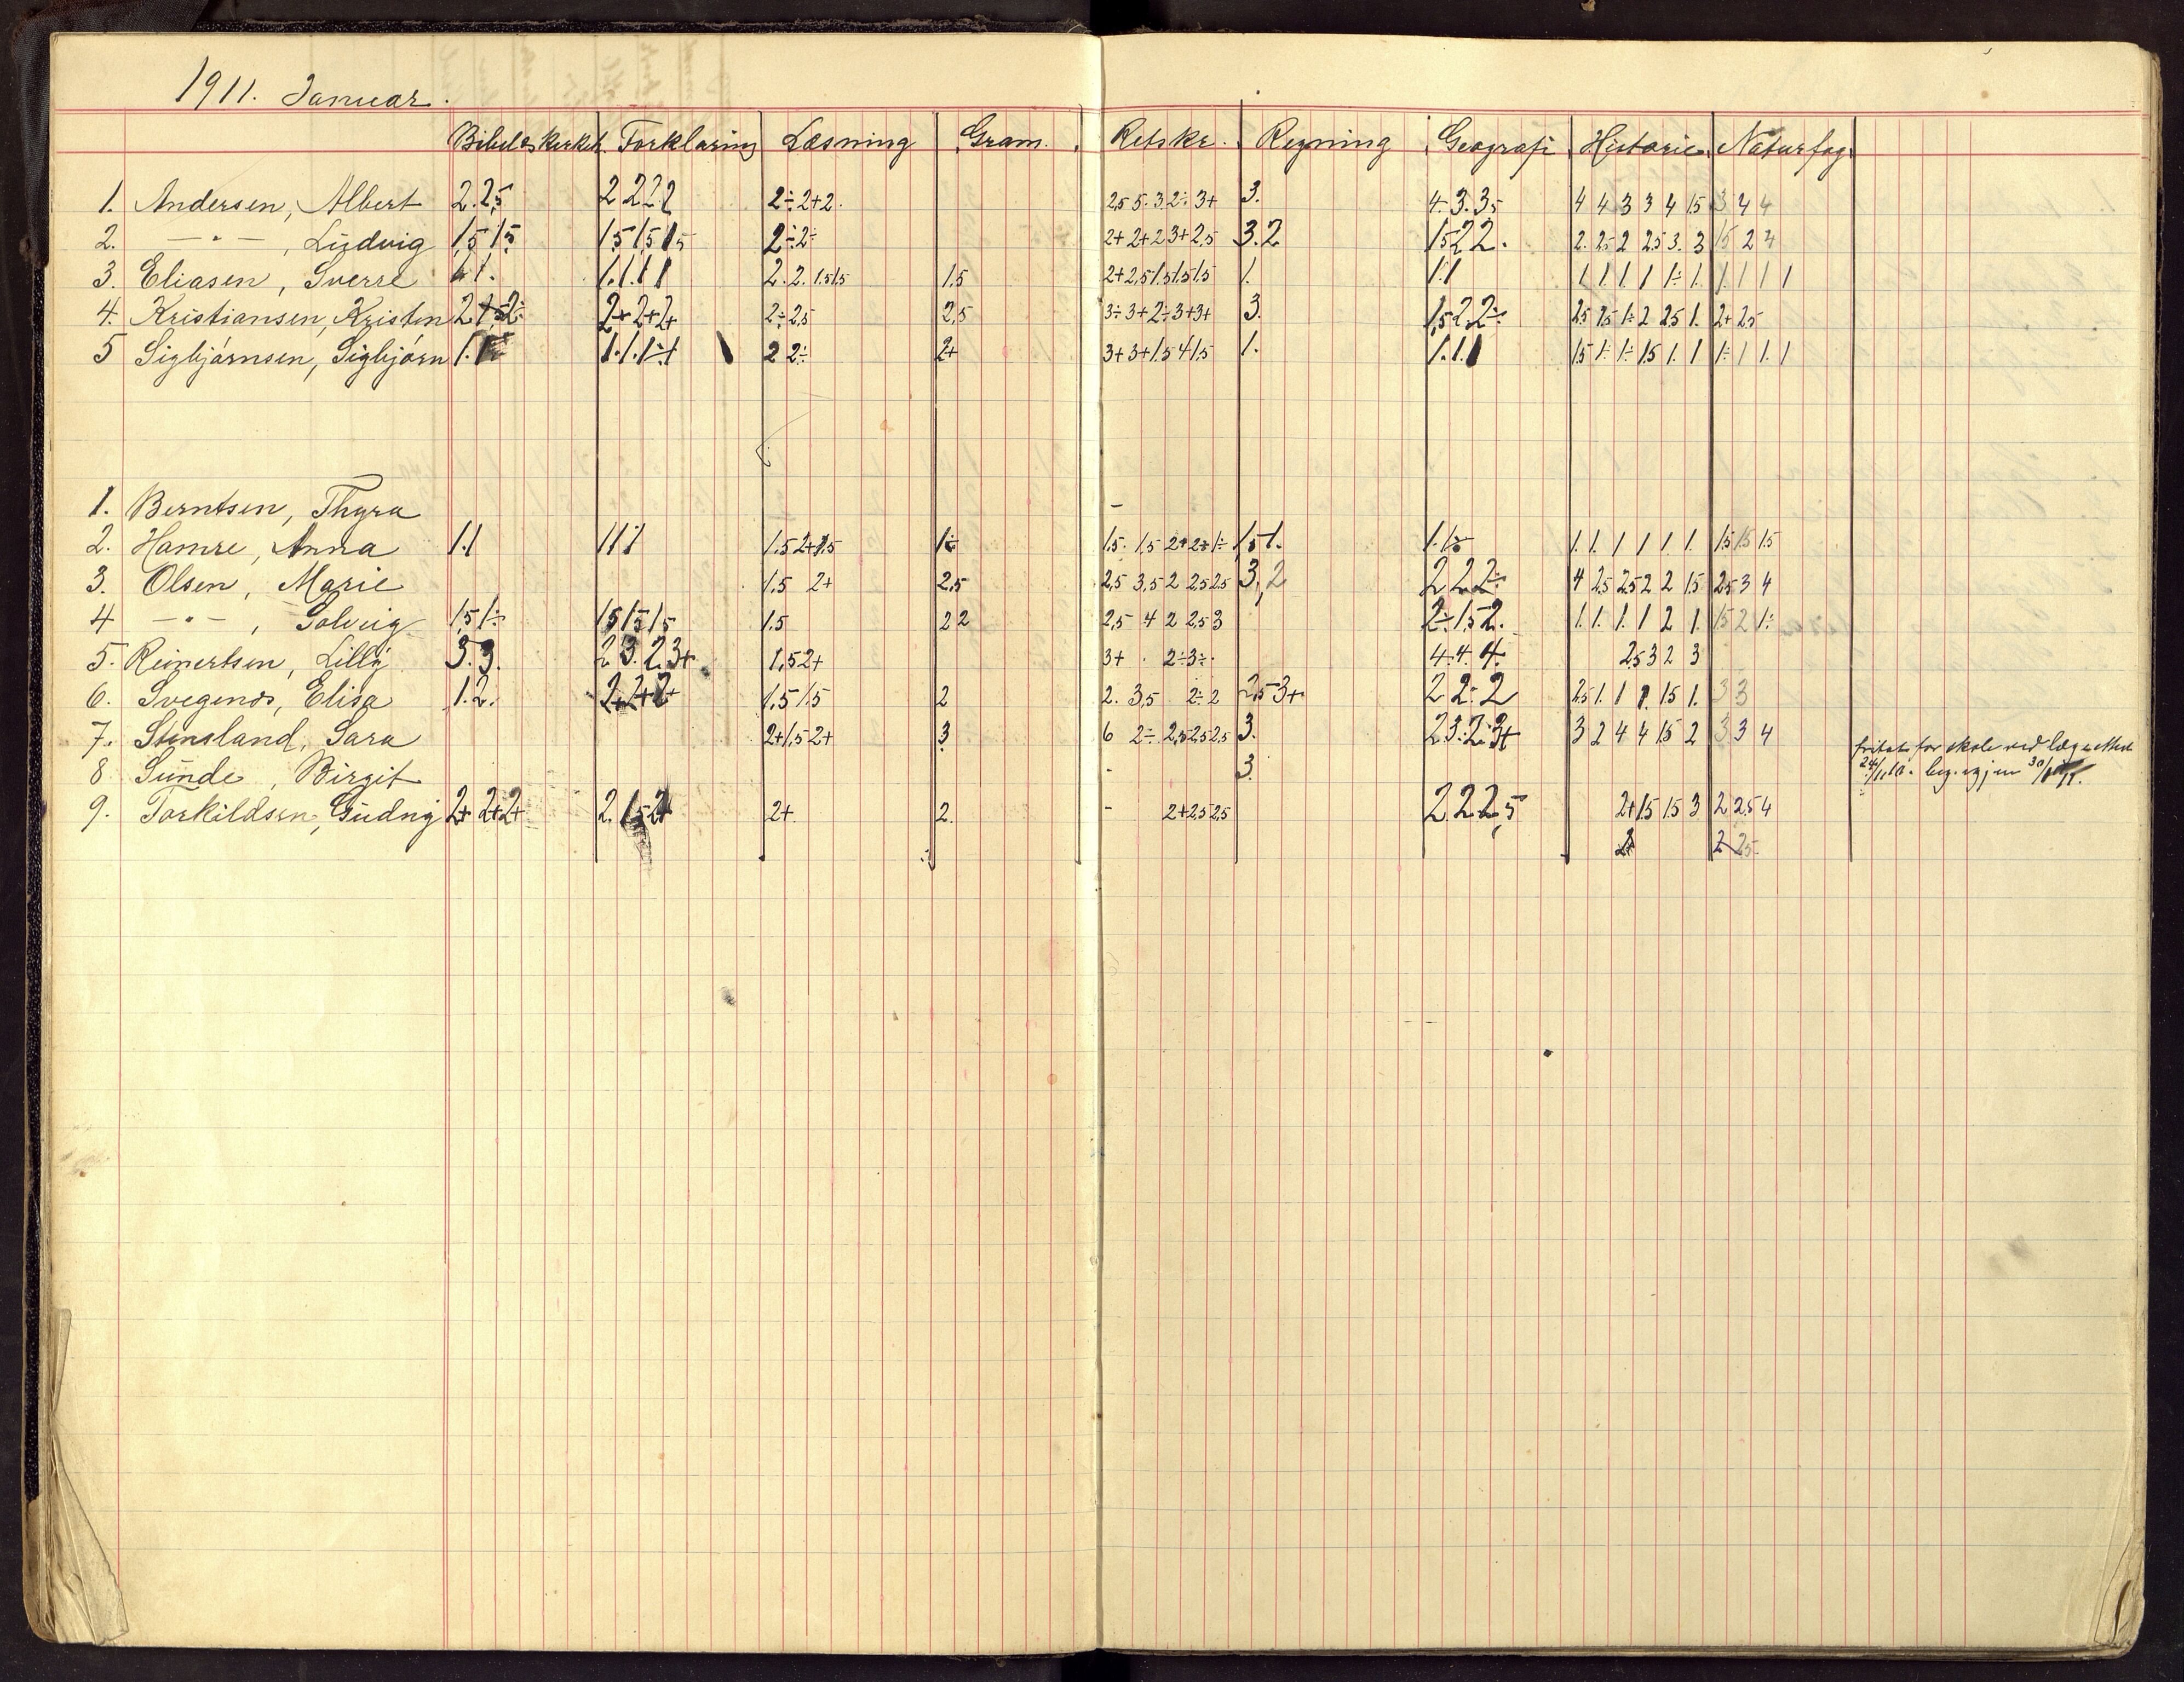 1911. Januar.
Forklaring Læsning Gram. Retskr. Regning Geografi Historie Naturfag
1. Andersen, Albert 2.2,5 2 2 2 2 2÷2+2. 2,5 5. 3 2÷ 3+ 3. 4.3.3,5 4 4 3 3 4 1,5 3 4 4
2. —"—, Ludvig 1,5 1,5 1,5 1,5 1,5 2÷2÷ 2+ 2+ 2 3+ 2,5 3.2 1,5 2 2. 2. 2,5 2 2,5 3. 3 1,5 2 4
3. Eliasen, Sverre 1. 1.1.1 1 2. 2. 1,5 1,5 1,5 2+ 2,5 1,5 1,5 1,5 1. 1.1 1 1 1 1 1÷ 1. 1. 1 1 1
4. Kristiansen, Kristen 2+ 2+2+ 2÷2,5 2,5 3÷3+2÷3+3+ 3. 1,5 2 2÷ 2,5 1÷ 2 2,5 1. 2+ 2,5
5 Sigbjørnsen, Sigbjørn 1. 1.1.1÷1 2 2÷ 2+ 3+ 3+ 1.5 4 1,5 1. 1.1.1 1,5 1÷ 1÷ 1,5 1. 1 1÷ 1 1. 1
1. Berntsen, Thyra -
2. Hamre, Anna 1.1 1 1 1 1,5 2+ 1,5 1÷ 1,5. 1,5 2+ 2÷ 1÷ 1,5 1. 1. 1,5 1. 1. 1 1 1. 1. 1,5 1,5 1,5
3. Olsen, Marie 1,5 2+ 2,5 2,5 3,5 2 2,5 2,5 3,2 2 2 2÷ 4 2,5 2,5 2 2 1,5 2,5 3 4
4 —"—, Solveig 1,5 1÷ 1,5 1,5 1,5 1.5 2 2 2,5 4 2 2,5 3 2÷1,5 2. 1. 1. 1. 1 2 1. 1,5 2 1÷
5. Reinertsen, Lilly 3.3. 2 3. 2 3+ 1,5 2+ 3+ . 2÷3÷. 4. 4. 4. 2,5 3 2 3
6. Svegenos, Elisa 1.2. 2+2+2+ 1,5 1,5 2 2. 3,5 2÷ 2 2,5 3+ 2 2÷ 2 2,5 1. 1 1. 1,5 1. 3 3
7. Stensland, Sara 2+1,5 2+ 3 6 2÷ 2,5 2,5 2,5 3. 2 3÷ 2 3+ 3 2 4 4 1,5 2 3 3 4
8. Sunde, Birgit - 3. for skole ved lægeattest
24/11 10. beg. igjen 30/1 11.
9. Torkildsen, Gudny 2+ 2+2+ 2. 1,5 2+ 2+ 2. - 2+2,5 2,5 2 2 2 2,5 2+ 1,5 1,5 3 2 2,5 4
2 2,5